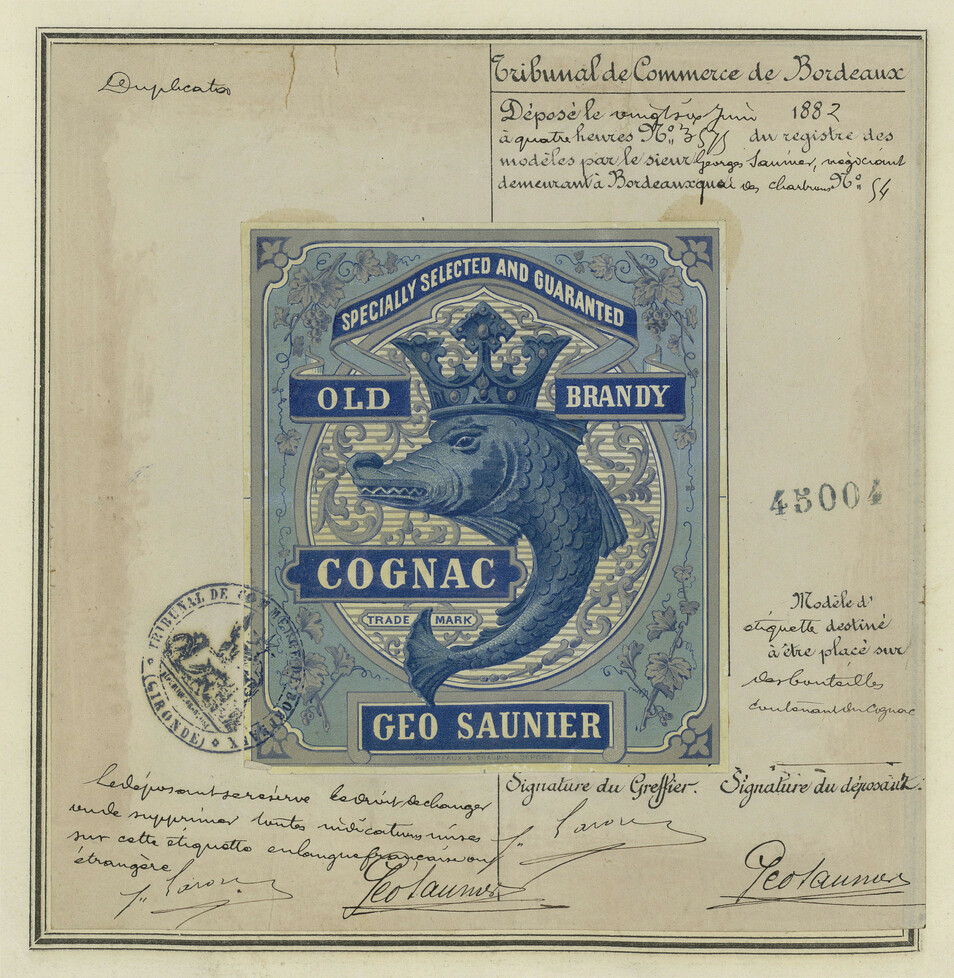 Duplicata
Tribunal de Commerce de Bordeaux
Déposé le vingt six Juin 1882
à quatre heures No. 3575 du registre des
modèles par le sieur Georges Saunier, négociant
demeurant à Bordeaux quai des chartrons No. 54
SPECIALLY SELECTED AND GUARANTED
OLD BRANDY
COGNAC
TRADE MARK
GEO SAUNIER
45004
Modèle d'
étiquette destiné
à être placé sur
des bouteilles
contenant du Cognac
TRIBUNAL DE COMMERCE DE BORDEAUX
(GIRONDE)
Le déposant se réserve le droit de changer
ou de supprimer toutes indications mises
sur cette étiquette en langue française ou
étrangère
Geo Saunier
Signature du Greffier. Signature du déposant.
Geo Saunier